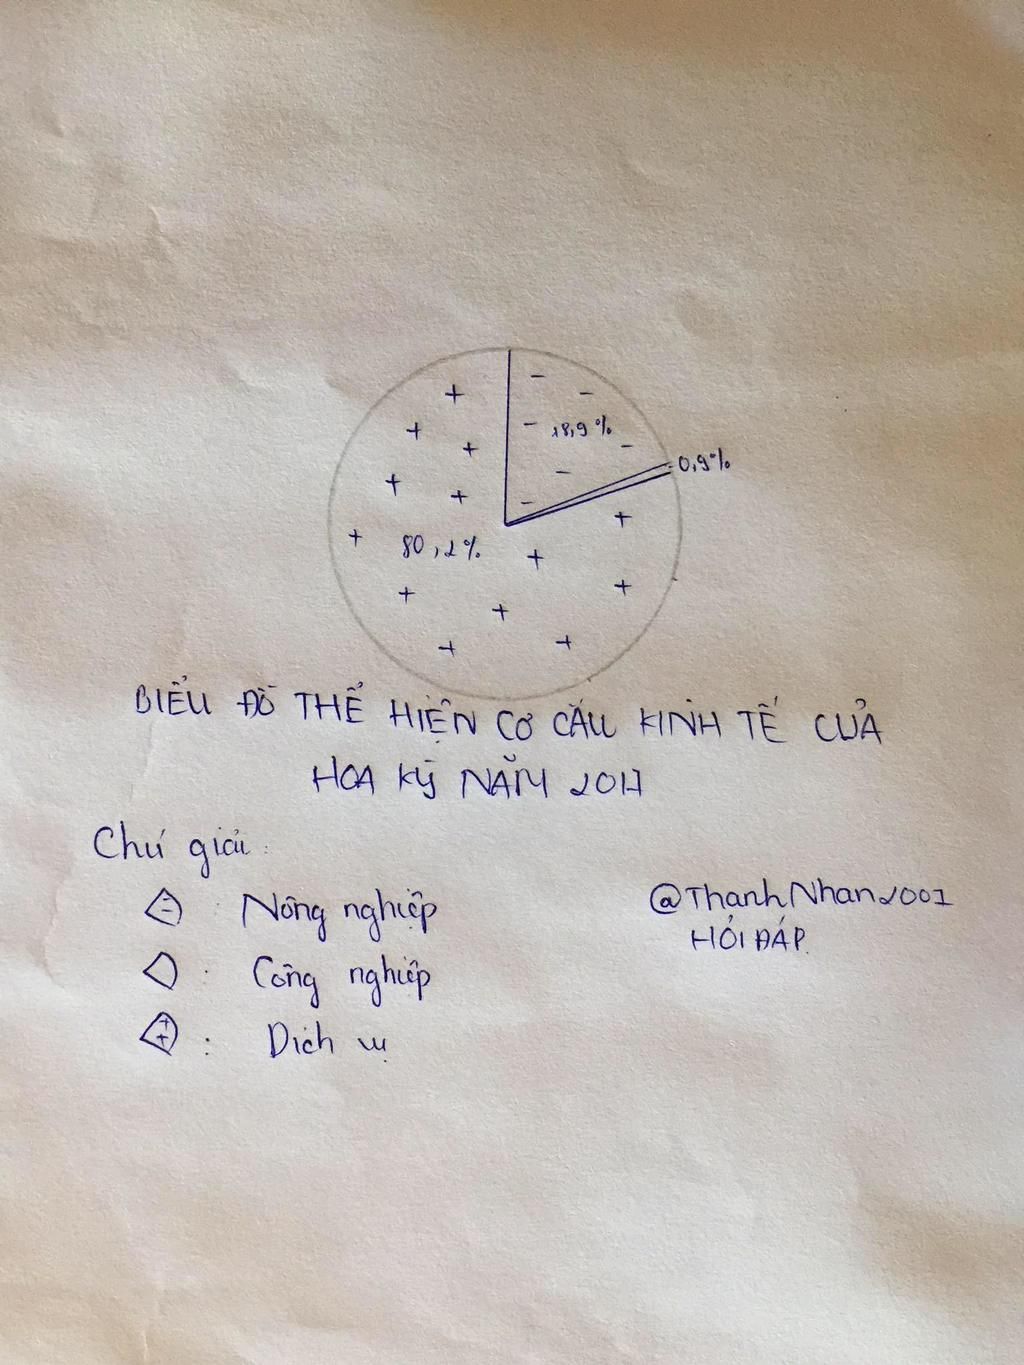 18,9%
0,9%
80,2%
BIỂU ĐỒ THỂ HIỆN CƠ CẤU KINH TẾ CỦA
HOA KỲ NĂM 2017
Chú giải:
- : Nông nghiệp
: Công nghiệp
++ : Dịch vụ
@ThanhNhan2001
HỎI ĐÁP